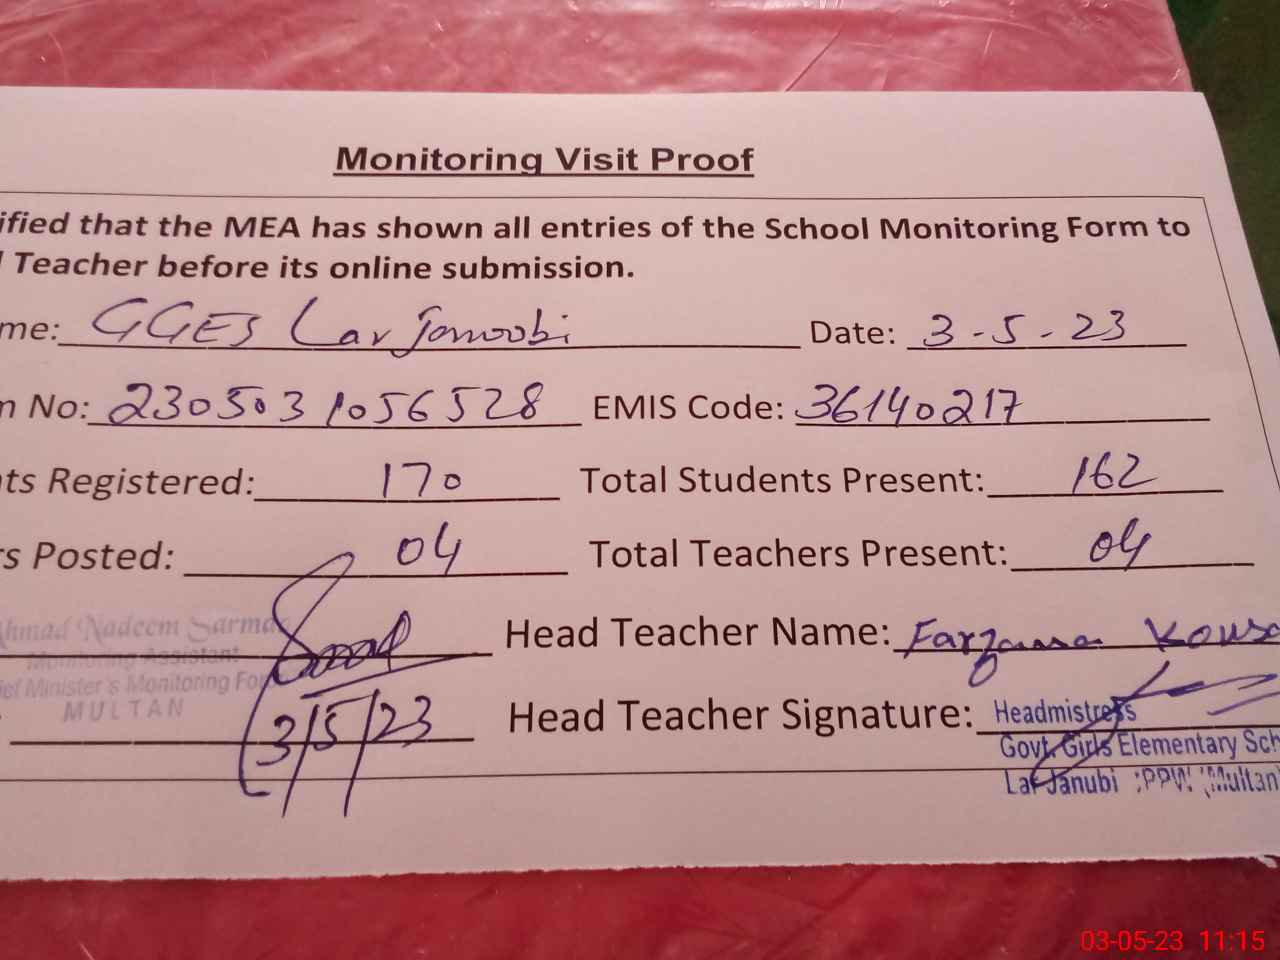 Monitoring Visit Proof
ified that the MEA has shown all entries of the School Monitoring Form to
Teacher before its online submission.
me: GGES Lar Janoobi Date: 3-5-23
No: 2305031056528 EMIS Code: 36140217
ts Registered: 170 Total Students Present: 162
s Posted: 04 Total Teachers Present: 04
Ahmad Nadeem Sarmad
Head Teacher Name: Farzana Kousa
Monitoring Assistant
ief Minister's Monitoring Force
MULTAN
3/5/23
Head Teacher Signature:
Headmistress
Govt. Girls Elementary Sch
Lar Janubi PPW (Multan)
03-05-23 11:15